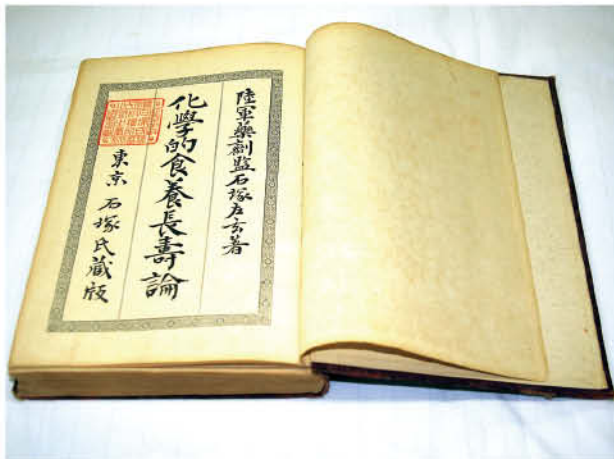 陸軍藥劑監石塚左玄著
化學的食養長壽論
東京 石塚氏藏版